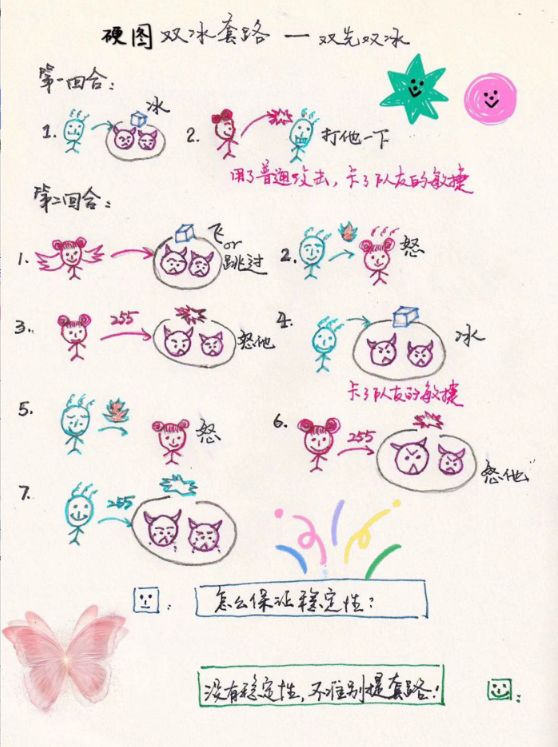 硬图双冰套路—双先双冰
第一回合:
1. 冰
2. 打他一下
用了普通攻击,卡了队友的敏捷
第二回合:
1. 飞or跳过
2. 怒
3. 255 怒他
4. 冰
卡了队友的敏捷
5. 怒
6. 255 怒他
7. 255
怎么保证稳定性?
没有稳定性,不准别提套路!